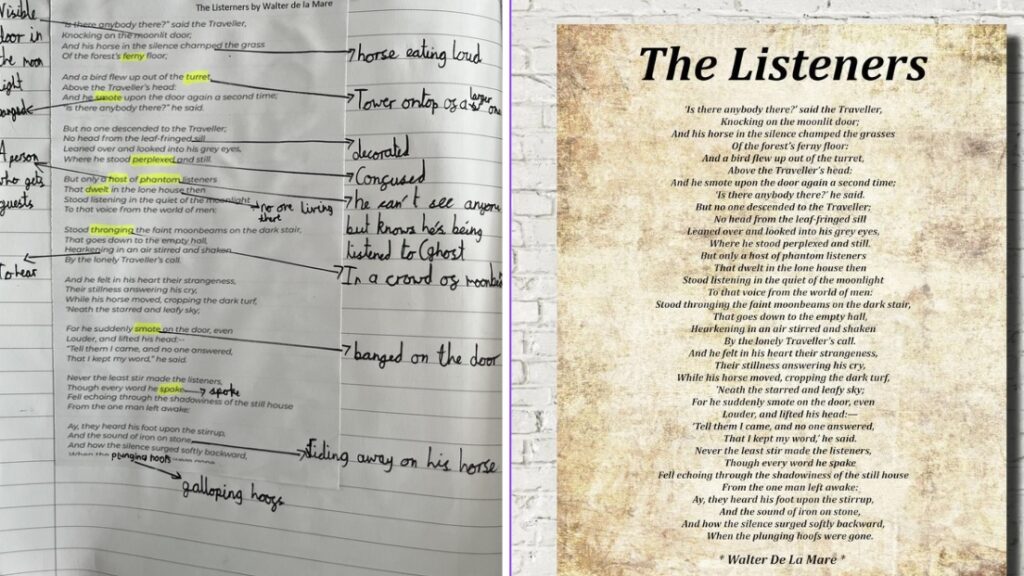 The Listerners by Walter de la Mare
Visible
door in
the moon
light
"Is there anybody there?" said the Traveller,
Knocking on the moonlit door;
And his horse in the silence champed the grass
Of the forest's ferny floor;
horse eating loud
And a bird flew up out of the turret,
Above the Traveller's head:
And he smote upon the door again a second time;
"Is there anybody there?" he said.
Tower ontop of a larger one
But no one descended to the Traveller;
No head from the leaf-fringed sill
Leaned over and looked into his grey eyes,
Where he stood perplexed and still.
decorated
Confused
A person
who gets
guests
But only a host of phantom listeners
That dwelt in the lone house then
Stood listening in the quiet of the moonlight
To that voice from the world of men:
no one living
there
he can't see anyone
but knows he's being
listened to (ghost
Stood thronging the faint moonbeams on the dark stair,
That goes down to the empty hall,
Hearkening in an air stirred and shaken
By the lonely Traveller's call.
To hear
In a crowd of
And he felt in his heart their strangeness,
Their stillness answering his cry,
While his horse moved, cropping the dark turf,
'Neath the starred and leafy sky;
For he suddenly smote on the door, even
Louder, and lifted his head:--
"Tell them I came, and no one answered,
That I kept my word," he said.
banged on the door
Never the least stir made the listeners,
Though every word he spake
Fell echoing through the shadowiness of the still house
From the one man left awake:
spoke
Ay, they heard his foot upon the stirrup,
And the sound of iron on stone,
And how the silence surged softly backward,
When the plunging hoofs
riding away on his horse
galloping hoofs
The Listeners
'Is there anybody there?' said the Traveller,
Knocking on the moonlit door;
And his horse in the silence champed the grasses
Of the forest's ferny floor:
And a bird flew up out of the turret,
Above the Traveller's head:
And he smote upon the door again a second time;
'Is there anybody there?' he said.
But no one descended to the Traveller;
No head from the leaf-fringed sill
Leaned over and looked into his grey eyes,
Where he stood perplexed and still.
But only a host of phantom listeners
That dwelt in the lone house then
Stood listening in the quiet of the moonlight
To that voice from the world of men:
Stood thronging the faint moonbeams on the dark stair,
That goes down to the empty hall,
Hearkening in an air stirred and shaken
By the lonely Traveller's call.
And he felt in his heart their strangeness,
Their stillness answering his cry,
While his horse moved, cropping the dark turf,
'Neath the starred and leafy sky;
For he suddenly smote on the door, even
Louder, and lifted his head:—
'Tell them I came, and no one answered,
That I kept my word,' he said.
Never the least stir made the listeners,
Though every word he spake
Fell echoing through the shadowiness of the still house
From the one man left awake:
Ay, they heard his foot upon the stirrup,
And the sound of iron on stone,
And how the silence surged softly backward,
When the plunging hoofs were gone.
* Walter De La Mare *